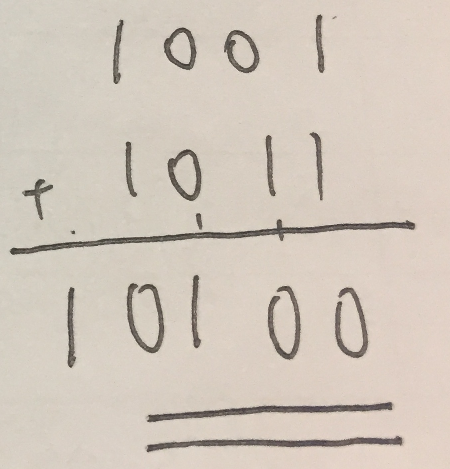 1 0 0 1
+ 1 0 1 1
1 0 1 0 0